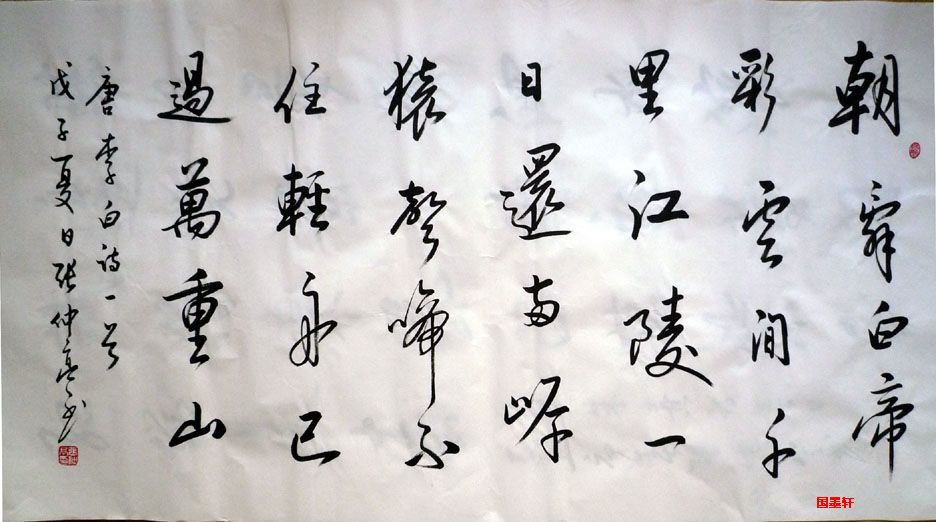 朝辭白帝
彩雲間千
里江陵一
日還两岸
猿聲啼不
住輕舟已
過萬重山
唐李白诗一首
戊子夏日张仲亭书
国墨轩